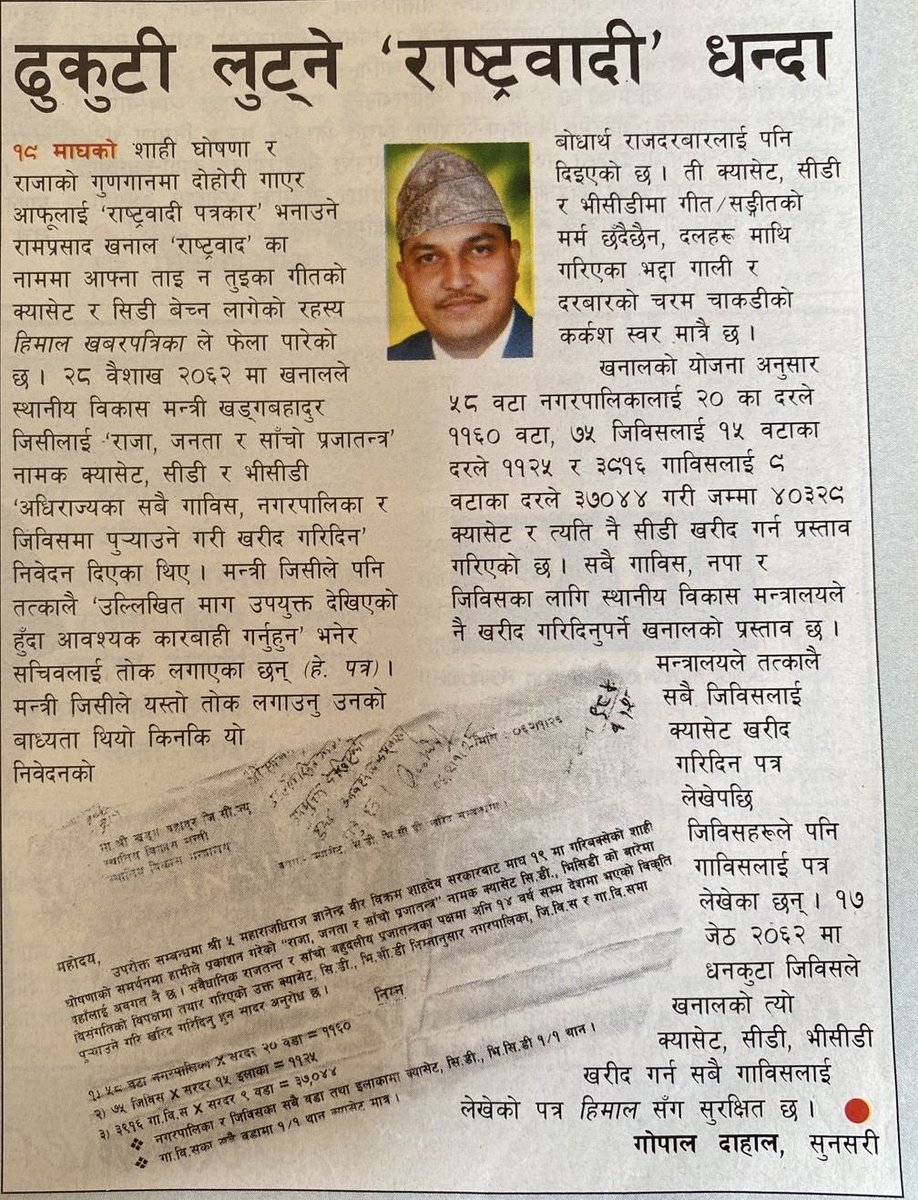 ढुकुटी लुट्ने ‘राष्ट्रवादी’ धन्दा
१९ माघको शाही घोषणा र
राजाको गुणगानमा दोहोरी गाएर
आफूलाई ‘राष्ट्रवादी पत्रकार’ भनाउने
रामप्रसाद खनाल ‘राष्ट्रवाद’ का
नाममा आफ्ना ताइ न तुइका गीतको
क्यासेट र सिडी बेच्न लागेको रहस्य
हिमाल खबरपत्रिका ले फेला पारेको
छ । २८ वैशाख २०६२ मा खनालले
स्थानीय विकास मन्त्री खड्गबहादुर
जिसीलाई ‘राजा, जनता र साँचो प्रजातन्त्र’
नामक क्यासेट, सीडी र भीसीडी
‘अधिराज्यका सबै गाविस, नगरपालिका र
जिविसमा पुऱ्याउने गरी खरीद गरिदिन’
निवेदन दिएका थिए । मन्त्री जिसीले पनि
तत्कालै ‘उल्लिखित माग उपयुक्त देखिएको
हुँदा आवश्यक कारबाही गर्नुहुन’ भनेर
सचिवलाई तोक लगाएका छन् (हे. पत्र) ।
मन्त्री जिसीले यस्तो तोक लगाउनु उनको
बाध्यता थियो किनकि यो
निवेदनको
बोधार्थ राजदरबारलाई पनि
दिइएको छ । ती क्यासेट, सीडी
र भीसीडीमा गीत/सङ्गीतको
मर्म छँदैछैन, दलहरू माथि
गरिएका भद्दा गाली र
दरबारको चरम चाकडीको
कर्कश स्वर मात्रै छ ।
खनालको योजना अनुसार
५८ वटा नगरपालिकालाई २० का दरले
११६० वटा, ७५ जिविसलाई १५ वटाका
दरले ११२५ र ३९१६ गाविसलाई ९
वटाका दरले ३७०४४ गरी जम्मा ४०३२९
क्यासेट र त्यति नै सीडी खरीद गर्न प्रस्ताव
गरिएको छ । सबै गाविस, नपा र
जिविसका लागि स्थानीय विकास मन्त्रालयले
नै खरीद गरिदिनुपर्ने खनालको प्रस्ताव छ ।
मन्त्रालयले तत्कालै
सबै जिविसलाई
क्यासेट खरीद
गरिदिन पत्र
लेखेपछि
जिविसहरूले पनि
गाविसलाई पत्र
लेखेका छन् । १७
जेठ २०६२ मा
धनकुटा जिविसले
खनालको त्यो
क्यासेट, सीडी, भीसीडी
खरीद गर्न सबै गाविसलाई
लेखेको पत्र हिमाल सँग सुरक्षित छ ।
गोपाल दाहाल, सुनसरी
महोदय,
उपरोक्त सम्बन्धमा श्री ५ महाराजधिराज ज्ञानेन्द्र वीर विक्रम शाहदेव सरकारबाट माघ १९ मा गरिबक्सेको शाही
घोषणाको समर्थनमा हामीले प्रकाशन गरेको “राजा, जनता र साँचो प्रजातन्त्र” नामक क्यासेट सि.डी., भिसिडी को बारेमा
यहाँलाई अवगत नै छ । संवैधानिक राजतन्त्र र साँचो बहुदलीय प्रजातन्त्रका पक्षमा अनि १४ वर्ष सम्म देशमा भएको विकृति
विसंगतिको विपक्षमा तयार गरिएको उक्त क्यासेट, सि.डी., भि.सी.डी निम्नानुसार नगरपालिका, जि.वि.स र गा.वि.समा
पुऱ्याउने गरि खरिद गरिदिनु हुन सादर अनुरोध छ ।
निम्न
१) ५८ वटा नगरपालिका X सरदर २० वडा = ११६०
२) ७५ जिविस X सरदर १५ इलाका = ११२५
३) ३९१६ गा.वि.स X सरदर ९ वडा = ३७,०४४
❖ नगरपालिका र जिविसका सबै वडा तथा इलाकामा क्यासेट, सि.डी., भि.सि.डी १/१ थान ।
❖ गा.वि.सका सबै वडामा १/१ थान क्यासेट मात्र ।